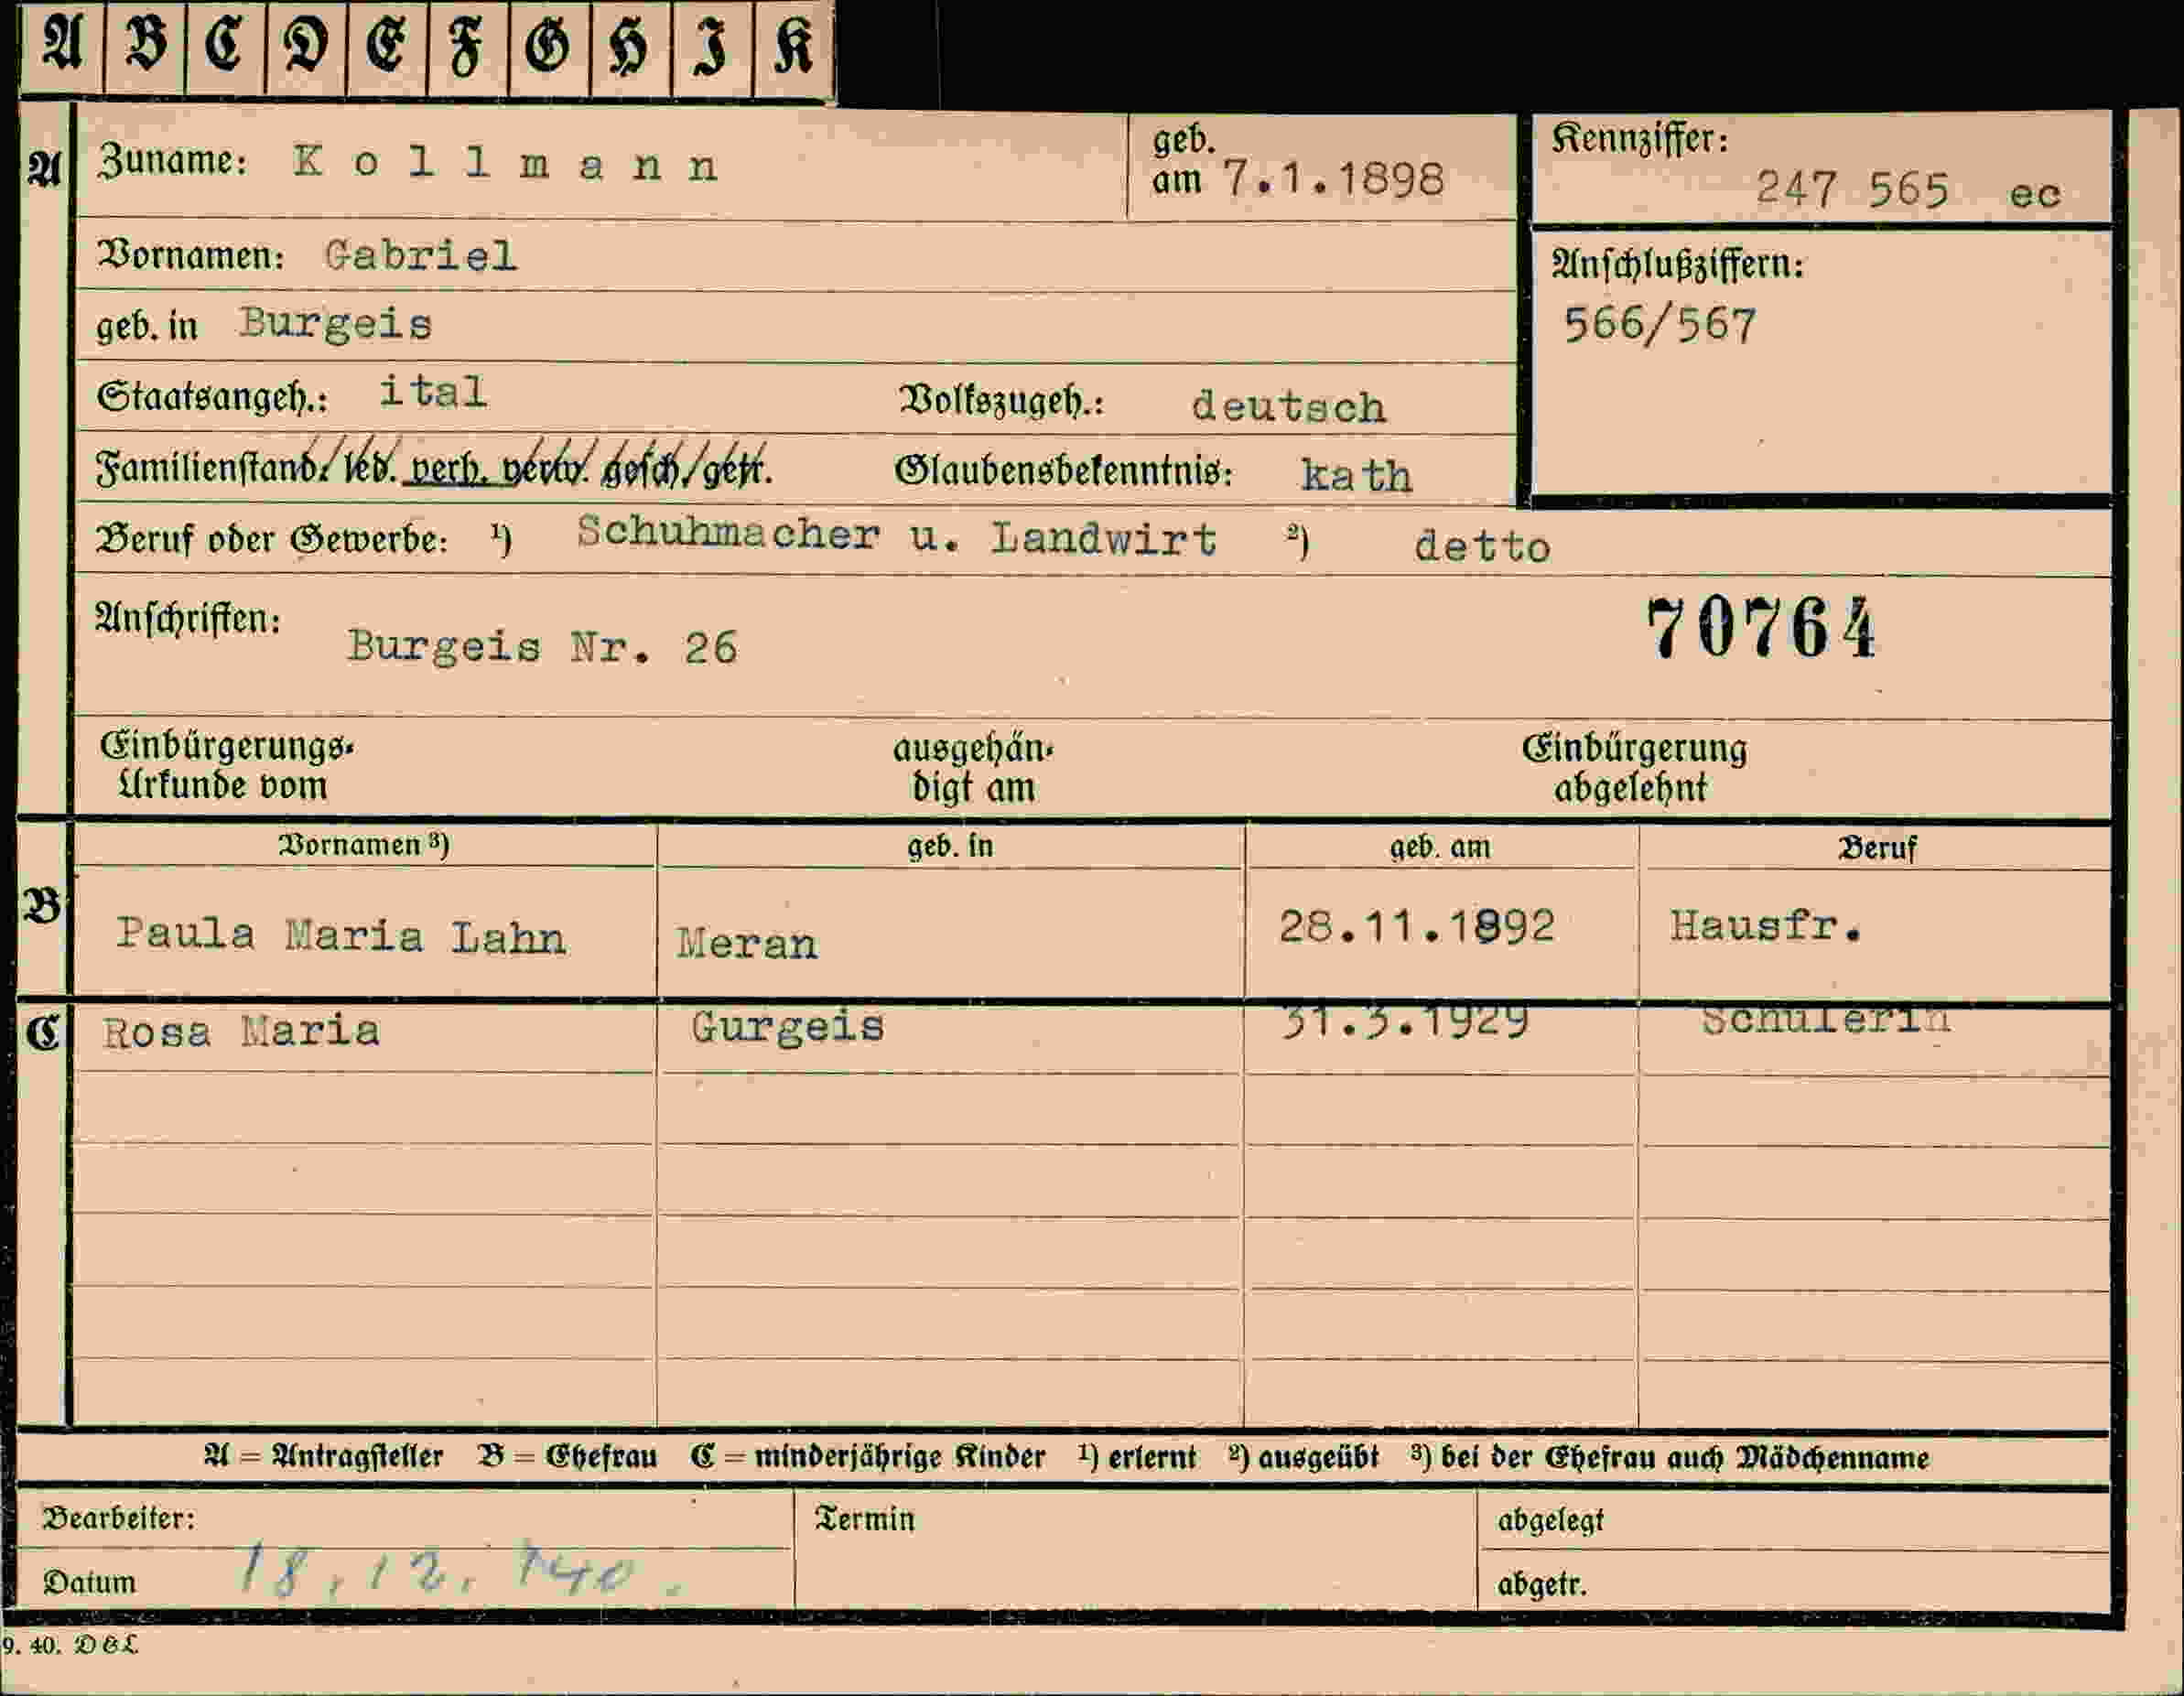 A B C D E F G H I K
A Zuname: Kollmann geb. am 7.1.1898 Kennziffer: 247 565 ec
Vornamen: Gabriel
Anschlußziffern: 566/567
geb. in Burgeis
Staatsangeh.: ital Volkszugeh.: deutsch
Familienstand: led. verh. verw. gesch. getr. Glaubensbekenntnis: kath
Beruf oder Gewerbe: ¹) Schuhmacher u. Landwirt ²) detto
Anschriften: Burgeis Nr. 26 70764
Einbürgerungs- ausgehän- Einbürgerung
Urkunde vom digt am abgelehnt
Vornamen ³) geb. in geb. am Beruf
B Paula Maria Lahn Meran 28.11.1892 Hausfr.
C Rosa Maria Gurgeis 31.3.1929 Schülerin
A = Antragsteller B = Ehefrau C = minderjährige Kinder ¹) erlernt ²) ausgeübt ³) bei der Ehefrau auch Mädchenname
Bearbeiter: Termin abgelegt
Datum 18.12.1940. abgetr.
9. 40. D&L